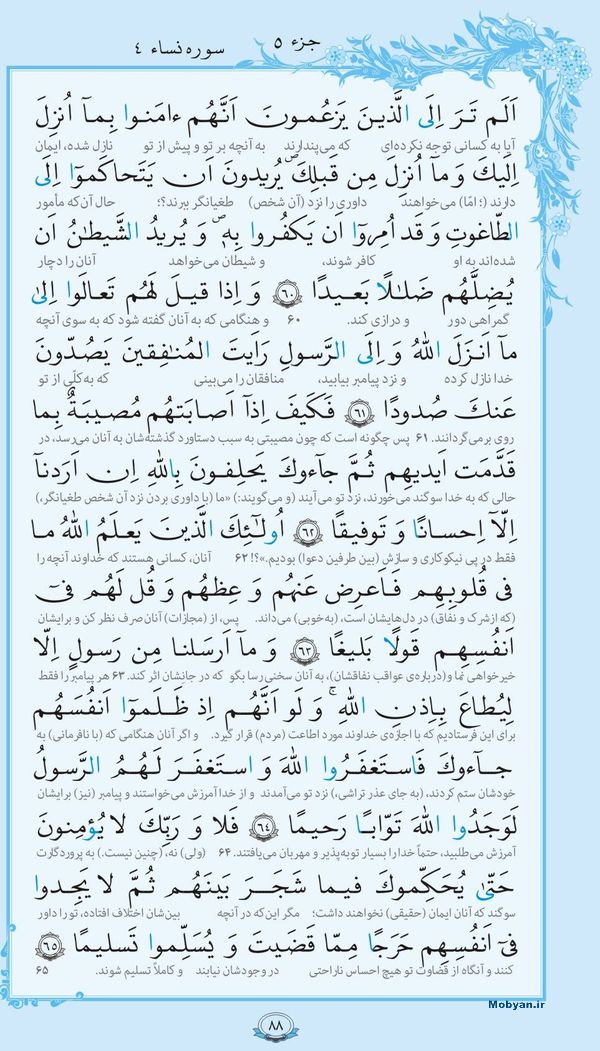 جزء ۵
سوره نساء ۴
اَلَم تَرَ اِلَى الَّذينَ يَزعُمونَ اَنَّهُم ءامَنوا بِمآ اُنزِلَ
آیا به کسانی توجه نکرده‌ای که می‌پندارند به آنچه بر تو و پیش از تو نازل شده، ایمان
اِلَيكَ وَ مآ اُنزِلَ مِن قَبلِكَ ۖ يُريدونَ اَن يَتَحاكَموٓا اِلَى
دارند (؛ امّا) می‌خواهند داوری را نزد (آن شخص) طغیانگر ببرند؟! حال آن‌که مأمور
الطّاغوتِ وَ قَد اُمِروٓا اَن يَكفُروا بِهٖ ۖ وَ يُريدُ الشَّيطٰنُ اَن
شده‌اند به او کافر شوند، و شیطان می‌خواهد آنان را دچار
يُضِلَّهُم ضَلٰلًا بَعيدًا ﴿٦٠﴾ وَ اِذا قيلَ لَهُم تَعالَوا اِلىٰ
گمراهی دور و درازی کند. ۶۰ و هنگامی که به آنان گفته شود که به سوی آنچه
مآ اَنزَلَ اللهُ وَ اِلَى الرَّسولِ رَاَيتَ المُنٰفِقينَ يَصُدّونَ
خدا نازل کرده و نزد پیامبر بیایید، منافقان را می‌بینی که به‌کلّی از تو
عَنكَ صُدودًا ﴿٦١﴾ فَكَيفَ اِذآ اَصابَتهُم مُصيبَةٌۢ بِما
روی برمی‌گردانند. ۶۱ پس چگونه است که چون مصیبتی به سبب دستاورد گذشته‌شان به آنان می‌رسد، در
قَدَّمَت اَيديهِم ثُمَّ جآءوكَ يَحلِفونَ بِاللهِ اِن اَرَدنآ
حالی که به خدا سوگند می‌خورند، نزد تو می‌آیند (و می‌گویند:) «ما (با داوری بردن نزد آن شخص طغیانگر،)
اِلّآ اِحسانًا وَ تَوفيقًا ﴿٦٢﴾ اُولٰٓئِكَ الَّذينَ يَعلَمُ اللهُ ما
فقط در پی نیکوکاری و سازش (بین طرفین دعوا) بودیم.»؟! ۶۲ آنان، کسانی هستند که خداوند آنچه را
فى قُلوبِهِم فَاَعرِض عَنهُم وَ عِظهُم وَ قُل لَهُم فىٓ
(که از شرک و نفاق) در دل‌هایشان است، (به‌خوبی) می‌داند. پس، از (مجازات) آنان صرف نظر کن و برایشان
اَنفُسِهِم قَولًا بَليغًا ﴿٦٣﴾ وَ مآ اَرسَلنا مِن رَسولٍ اِلّا
خیرخواهی نما و (درباره‌ی عواقب نفاقشان)، به آنان سخنی رسا بگو که در جانشان اثر کند. ۶۳ هر پیامبر را فقط
لِيُطاعَ بِاِذنِ اللهِ ۚ وَ لَو اَنَّهُم اِذ ظَلَموٓا اَنفُسَهُم
برای این فرستادیم که با اجازه‌ی خداوند مورد اطاعت (مردم) قرار گیرد. و اگر آنان هنگامی که (با نافرمانی) به
جآءوكَ فَاستَغفَرُوا اللهَ وَ استَغفَرَ لَهُمُ الرَّسولُ
خودشان ستم کردند، (به جای عذر تراشی،) نزد تو می‌آمدند و از خدا آمرزش می‌خواستند و پیامبر (نیز) برایشان
لَوَجَدُوا اللهَ تَوّابًا رَحيمًا ﴿٦٤﴾ فَلا وَ رَبِّكَ لا يُؤمِنونَ
آمرزش می‌طلبید، حتماً خدا را بسیار توبه‌پذیر و مهربان می‌یافتند. ۶۴ (ولی) نه، (چنین نیست.) به پروردگارت
حَتّىٰ يُحَكِّموكَ فيما شَجَرَ بَينَهُم ثُمَّ لا يَجِدوا
سوگند که آنان ایمان (حقیقی) نخواهند داشت؛ مگر این‌که در آنچه بین‌شان اختلاف افتاده، تو را داور
فىٓ اَنفُسِهِم حَرَجًا مِمّا قَضَيتَ وَ يُسَلِّموا تَسليمًا ﴿٦٥﴾
کنند و آنگاه از قضاوت تو هیچ احساس ناراحتی در وجودشان نیابند و کاملاً تسلیم شوند. ۶۵
Mobyan.ir
۸۸